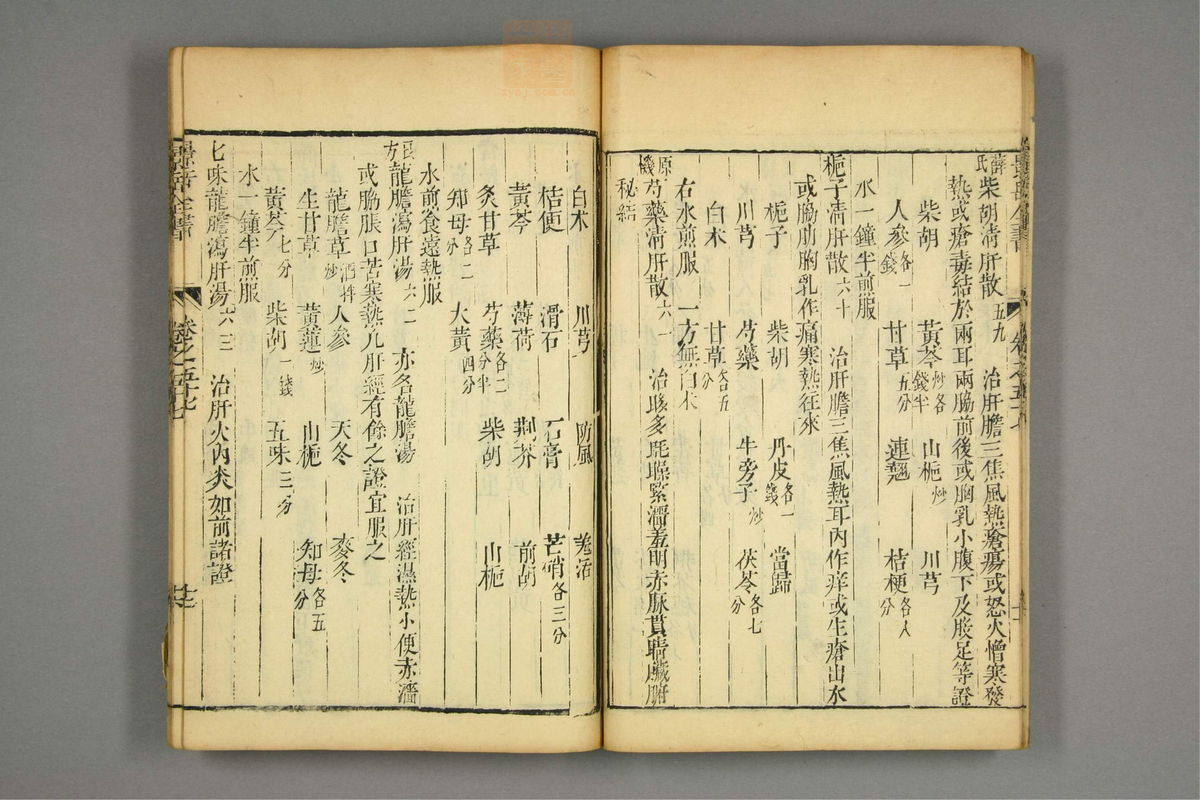 薛氏柴胡清肝散五九 治肝膽三焦風熱瘡瘍或怒火憎寒發
熱或瘡毒結於兩耳兩脇前後或胸乳小腹下及股足等證
柴胡 黃芩炒各錢半 山梔炒 川芎
人參各一錢 甘草五分 連翹 桔梗各八分
水一鐘半煎服
梔子清肝散六十 治肝膽三焦風熱耳內作痒或生瘡出水
或脇肋胸乳作痛寒熱往來
梔子 柴胡 丹皮各一錢 當歸
川芎 芍藥 牛旁子炒 茯苓各七分
白朮 甘草各五分
右水煎服 一方無白朮
原機芍藥清肝散六一 治眵多眊矂緊濇羞明赤脉貫睛臟腑
秘結
白朮 川芎 防風 羌活
桔梗 滑石 石膏 芒硝各三分
黃芩 薄荷 荆芥 前胡
炙甘草 芍藥各二分半 柴胡 山梔
知母各二分 大黃四分
水煎食遠熱服
良方龍膽瀉肝湯六二 亦名龍膽湯 治肝經濕熱小便赤濇
或脇脹口苦寒熱凡肝經有餘之證宜服之
龍膽草酒拌炒 人參 天冬 麥冬
生甘草 黃連炒 山梔 知母各五分
黃芩七分 柴胡一錢 五味三分
水一鐘半煎服
七味龍膽瀉肝湯六三 治肝火內炎如前諸證
景岳全書 卷之五十七